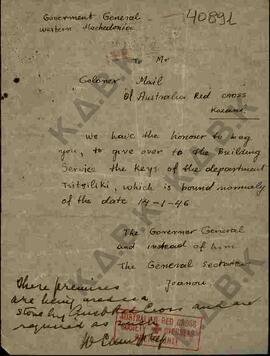 Goverment General
Western Machedonia
40891
To Mr
Coloner Mail
Of Australia Red CROSS
Kozani
We have the honour to beg
you, to give over to the Building
Service the keys of the department
Tsitsiliki, which is bound normely
of the date 14-1-46
The Governor General
and instead of him
The General secretary
Joanou
These premises
are being used as
store by Australian Red Cross and are
required as
AUSTRALIAN RED CROSS
SOCIETY